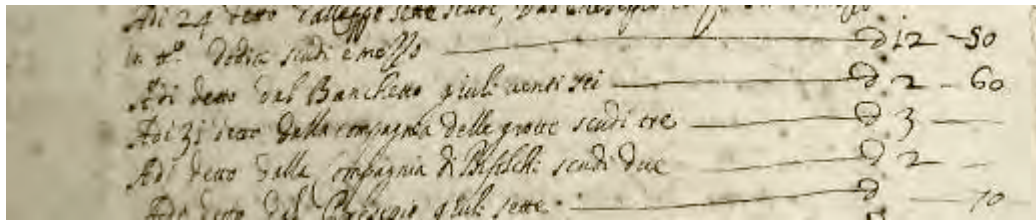 Adi 24 detto dall eggo sette scudi, dal Presepio
in tº. dodici scudi e mezzo ∇ 12 - 50
Adi detto dal Banchetto giuli venti sei ∇ 2 - 60
Adi 31 detto dalla compagnia delle grotte scudi tre ∇ 3 —
Adi detto dalla compagnia di scudi due ∇ 2 —
Adi detto dal Presepio giuli sette ∇ - 70